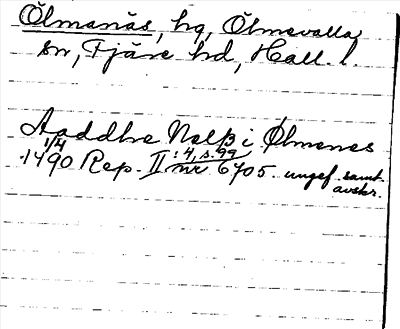 Ölmanäs, hg, Ölmevalla
sn, Fjäre hd, Hall. l.
Aaddhe Nielß i Ølmenes
1/4 1490 Rep. II:4, s. 99 nr 6705. ungef. samt. avskr.